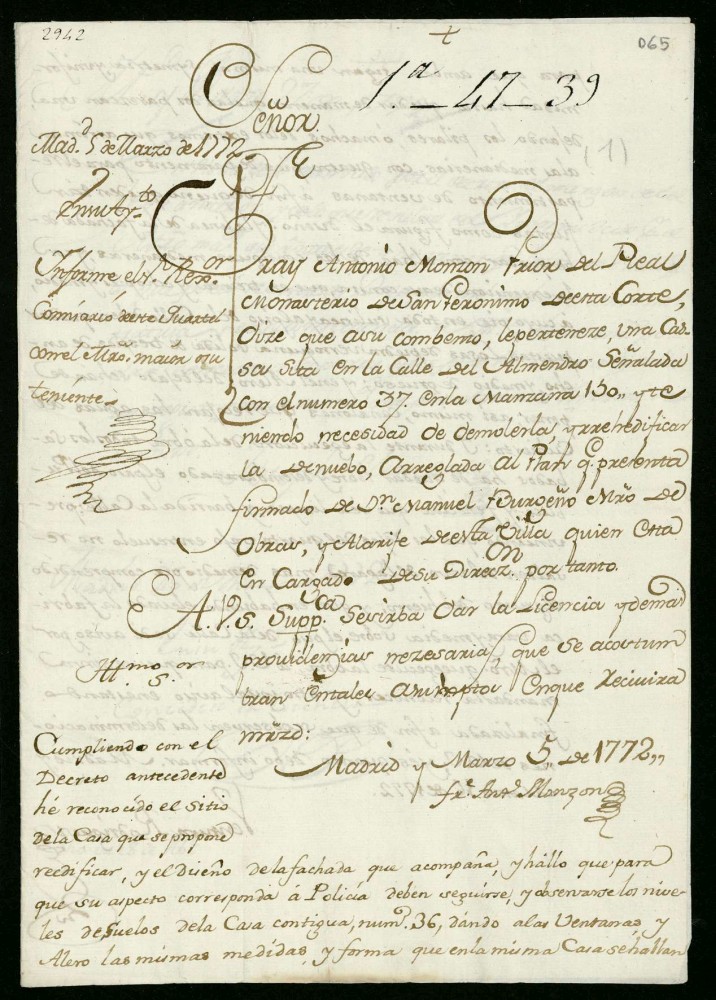 2942
065
1.ª — 47 — 39
(1)
Señor.
Mad.d 5 de Marzo de 1772
En su Ay.to
Informe el S.r Rexor.
Comisario de este Quartel
con el Mro. maior o su
teniente
Fray Antonio Monzon Prior del Real
Monasterio de San Geronimo de esta Corte,
Dize que a su combento, le perteneze, una Ca-
sa sita en la Calle del Almendro Señalada
con el numero 37 en la Manzana 150,, y te
niendo necesidad de demolerla, y rrehedificar
la de nuebo, Arreglada al Plan q.e presenta
firmado de D.n Manuel Burgeño Mro de
Obras, y Alarife de esta Villa quien esta
en Cargado de su Direcz.on por tanto.
A.V.S. Supp.ca se sirba dar la Licencia y demas
providencias nezesarias que se acostum
bran en tales asumptos en que Recivira
mrzd:
Madrid y Marzo 5,, de 1772,,
fr. Ant.o Monzon
Ill.mo S.or
Cumpliendo con el
Decreto antecedente
hé reconocido el sitio
de la Casa que se propone
reedificar, y el diseño de la fachada que acompaña, y hállo que para
que su aspecto corresponda á Policía deben seguirse, y observarse los nive-
les de suelos de la Casa contigua, num.o 36, dándo a las Ventanas, y
Alero las mismas medidas, y forma que en la misma Casa se hallan